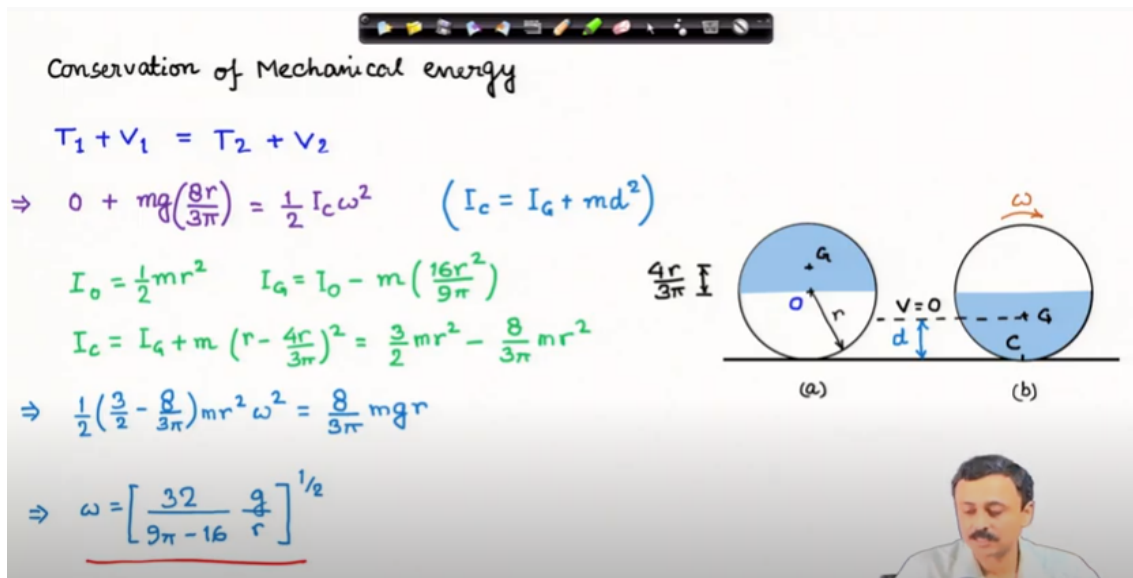 Conservation of Mechanical energy
T₁ + V₁ = T₂ + V₂
⇒ 0 + mg(8r/3π) = 1/2 I_c ω² (I_c = I_G + md²)
I_o = 1/2 mr² I_G = I_o − m(16r²/9π)
I_c = I_G + m(r − 4r/3π)² = 3/2 mr² − 8/3π mr²
⇒ 1/2(3/2 − 8/3π)mr²ω² = 8/3π mgr
⇒ ω = [32/(9π−16) g/r]^1/2
4r/3π
G
O
r
(a)
ω
V=0
d
G
C
(b)